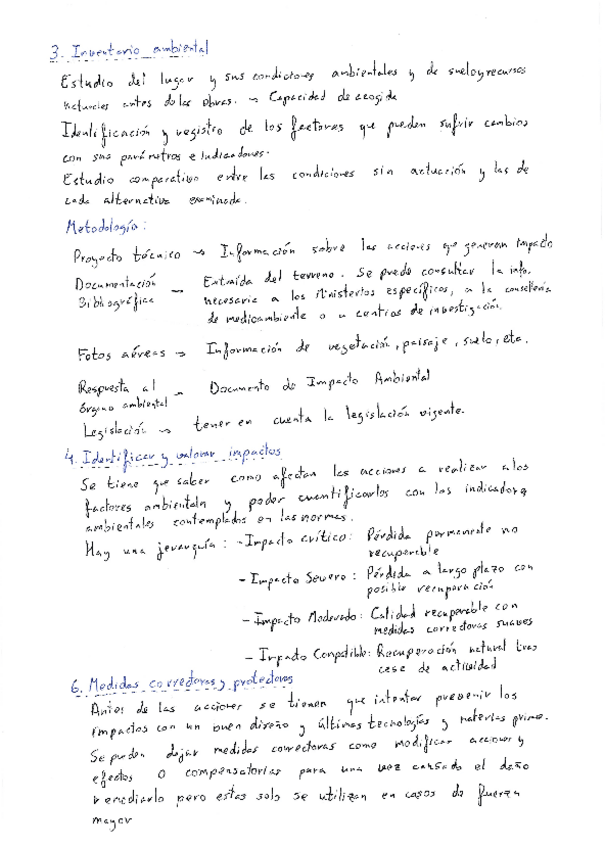 3. Inventario ambiental
Estudio del lugar y sus condiciones ambientales y de suelo y recursos
naturales antes de las obras. → Capacidad de acogida
Identificación y registro de los factores que pueden sufrir cambios
con sus parámetros e indicadores.
Estudio comparativo entre las condiciones sin actuación y las de
cada alternativa examinada.
Metodología:
Proyecto técnico → Información sobre las acciones que generan impacto
Documentación Bibliográfica → Extraída del terreno. Se puede consultar la info.
necesaria a los Ministerios específicos, a la conselleria
de medicambiente o a centros de investigación.
Fotos aéreas → Información de vegetación, paisaje, suelo, etc.
Respuesta al órgano ambiental → Documento de Impacto Ambiental
Legislación → tener en cuenta la legislación vigente.
4. Identificar y valorar impactos
Se tiene que saber como afectan las acciones a realizar a los
factores ambientaln y poder cuantificarlos con los indicadores
ambientales contemplados en las normas.
Hay una jerarquía: - Impacto crítico: Pérdida permanente no
recuperable
- Impacto Severo: Pérdida a largo plazo con
posible recuperación
- Impacto Moderado: Calidad recuperable con
medidas correctoras suaves
- Impacto Compatible: Recuperación natural tras
cese de actividad
6. Medidas correctoras y protectoras
Antes de las acciones se tienen que intentar prevenir los
impactos con un buen diseño y últimas tecnologías y materias primas.
Se pueden dejar medidas correctoras como modificar acciones y
efectos o compensatorias para una vez causado el daño
remediarlo pero estas solo se utilizan en casos de fuerza
mayor